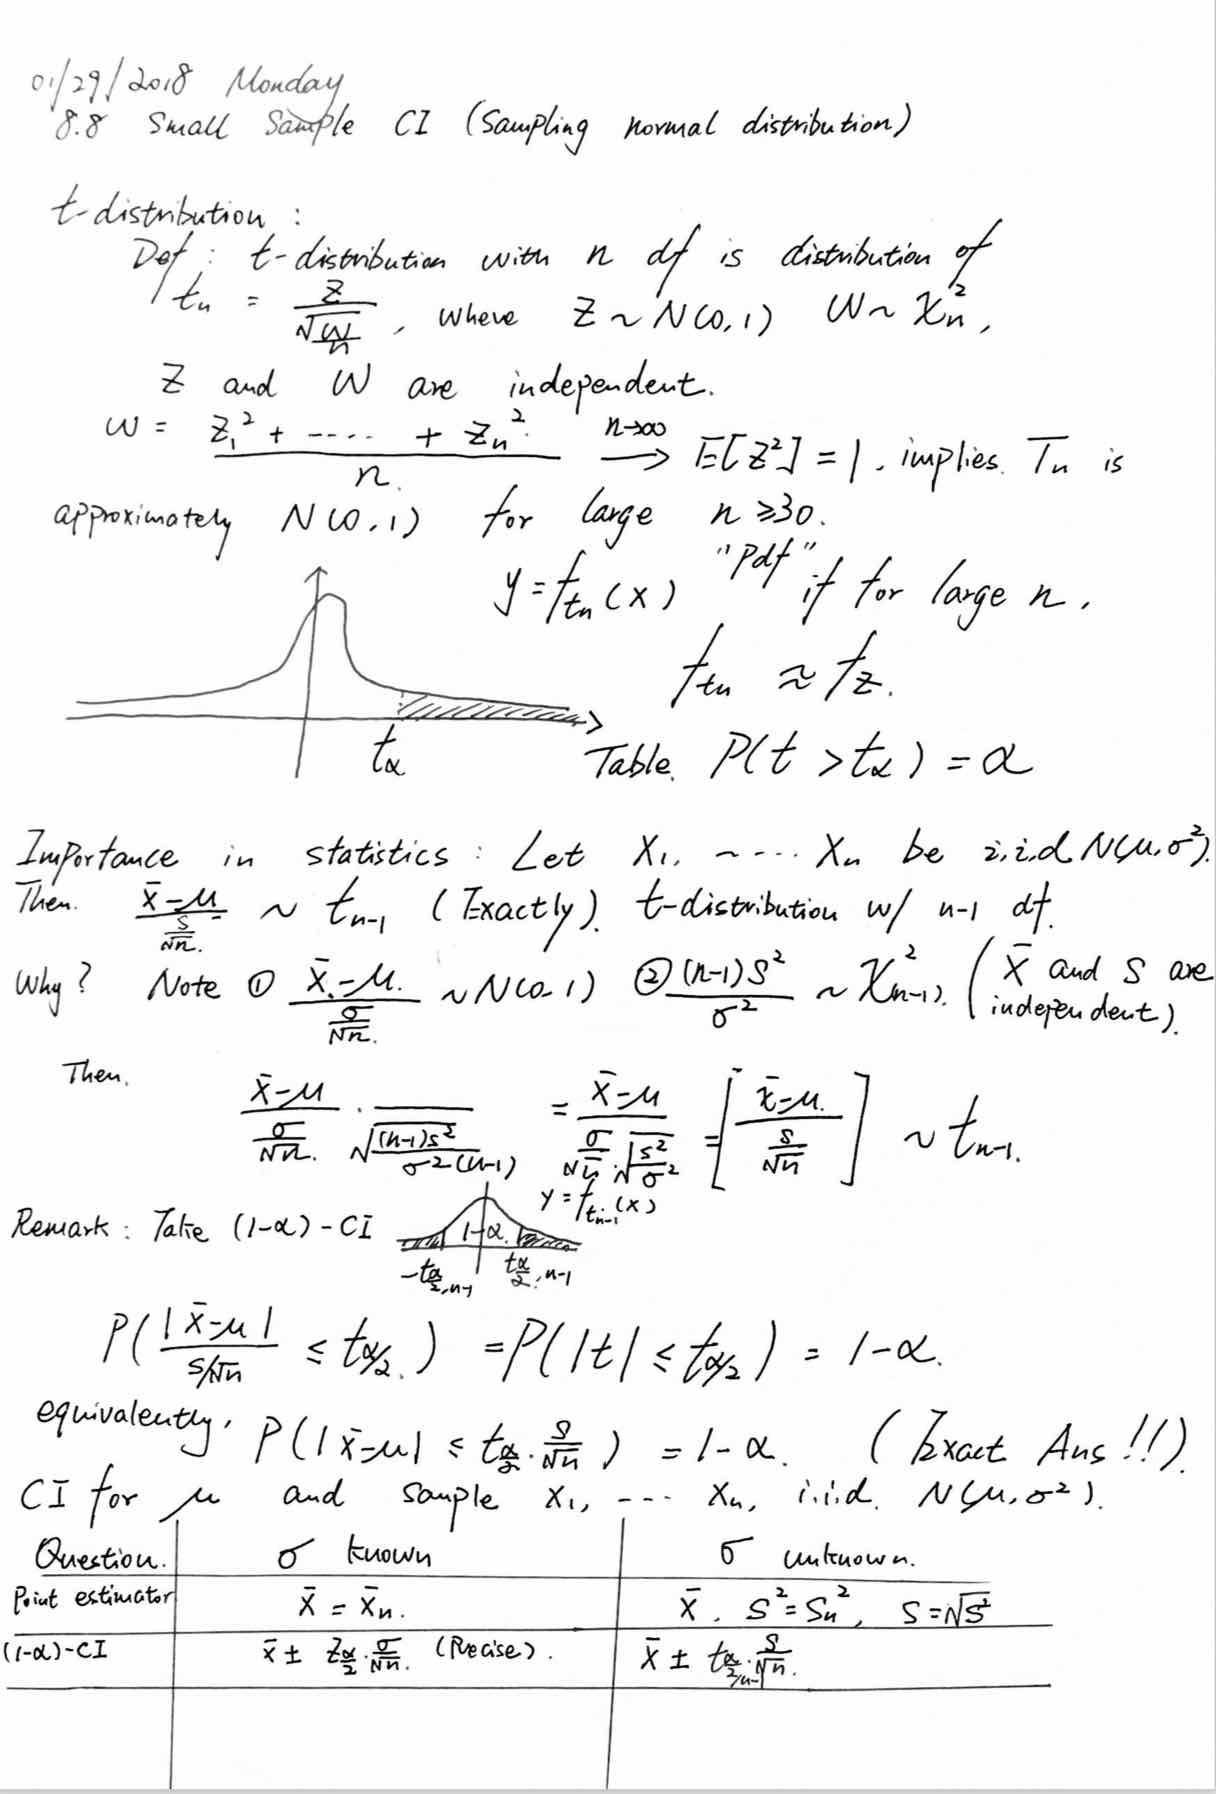 01/29/2018 Monday
8.8 Small Sample CI (Sampling normal distribution)
t-distribution :
Def : t-distribution with n df is distribution of
t_n = Z / √(W/n) , where Z ~ N(0,1) W ~ χ²_n ,
Z and W are independent.
W = (Z₁² + ---- + Z_n²) / n. →(n→∞) E[Z²] = 1 . implies. T_n is
approximately N(0,1) for large n ≥ 30.
y = f_{t_n}(x) "Pdf" if for large n .
f_{t_n} ≈ f_Z .
t_α
Table. P(t > t_α) = α
Importance in statistics : Let X₁, ~ --- X_n be i.i.d N(μ, σ²).
Then. (X̄-μ) / (S/√n) ~ t_{n-1} (Exactly). t-distribution w/ n-1 df.
Why? Note ① (X̄-μ) / (σ/√n) ~ N(0,1) ② (n-1)S² / σ² ~ χ²_{(n-1)}. ( X̄ and S are
independent).
Then.
(X̄-μ) / (σ/√n) · 1 / √((n-1)S² / σ²(n-1)) = (X̄-μ) / (σ/√n · √(S²/σ²)) = [ (X̄-μ) / (S/√n) ] ~ t_{n-1}.
Remark : Take (1-α) - CI
y = f_{t_{n-1}}(x)
1-α
-t_{α/2, n-1} t_{α/2, n-1}
P( |X̄-μ| / (S/√n) ≤ t_{α/2} ) = P( |t| ≤ t_{α/2} ) = 1-α.
equivalently, P( |X̄-μ| ≤ t_{α/2} · S/√n ) = 1-α. (Exact Ans !!).
CI for μ and sample X₁, --- X_n, i.i.d. N(μ, σ²).
Question. σ known σ unknown.
Point estimator X̄ = X̄_n. X̄ , S² = S_n², S = √S²
(1-α)-CI X̄ ± Z_{α/2} · σ/√n. (Precise). X̄ ± t_{α/2, n-1} · S/√n.